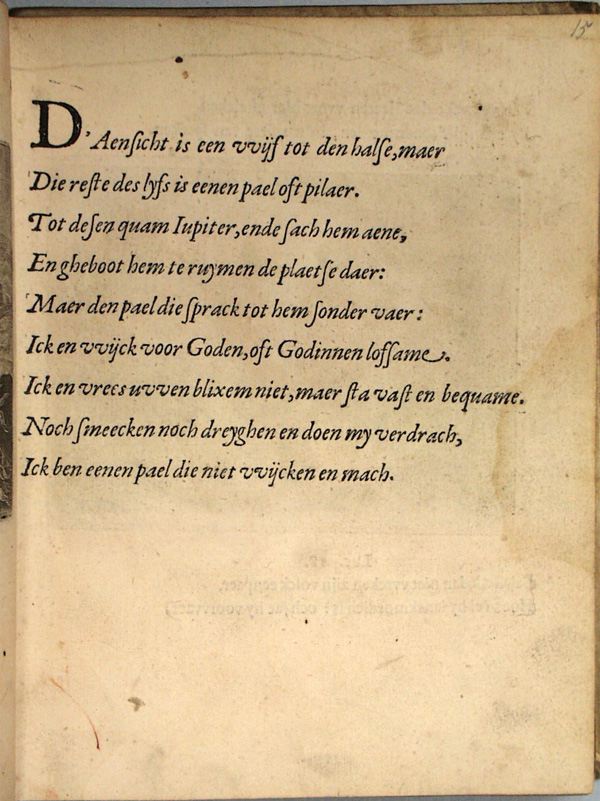 15
D'Aenſicht is een vvijf tot den halſe, maer
Die reſte des lyfs is eenen pael oft pilaer.
Tot deſen quam Iupiter, ende ſach hem aene,
En gheboot hem te ruymen de plaetſe daer:
Maer den pael die ſprack tot hem ſonder vaer:
Ick en vvijck voor Goden, oft Godinnen lofſame.
Ick en vrees uvven blixem niet, maer ſta vaſt en bequame.
Noch ſmeecken noch dreyghen en doen my verdrach,
Ick ben eenen pael die niet vvijcken en mach.